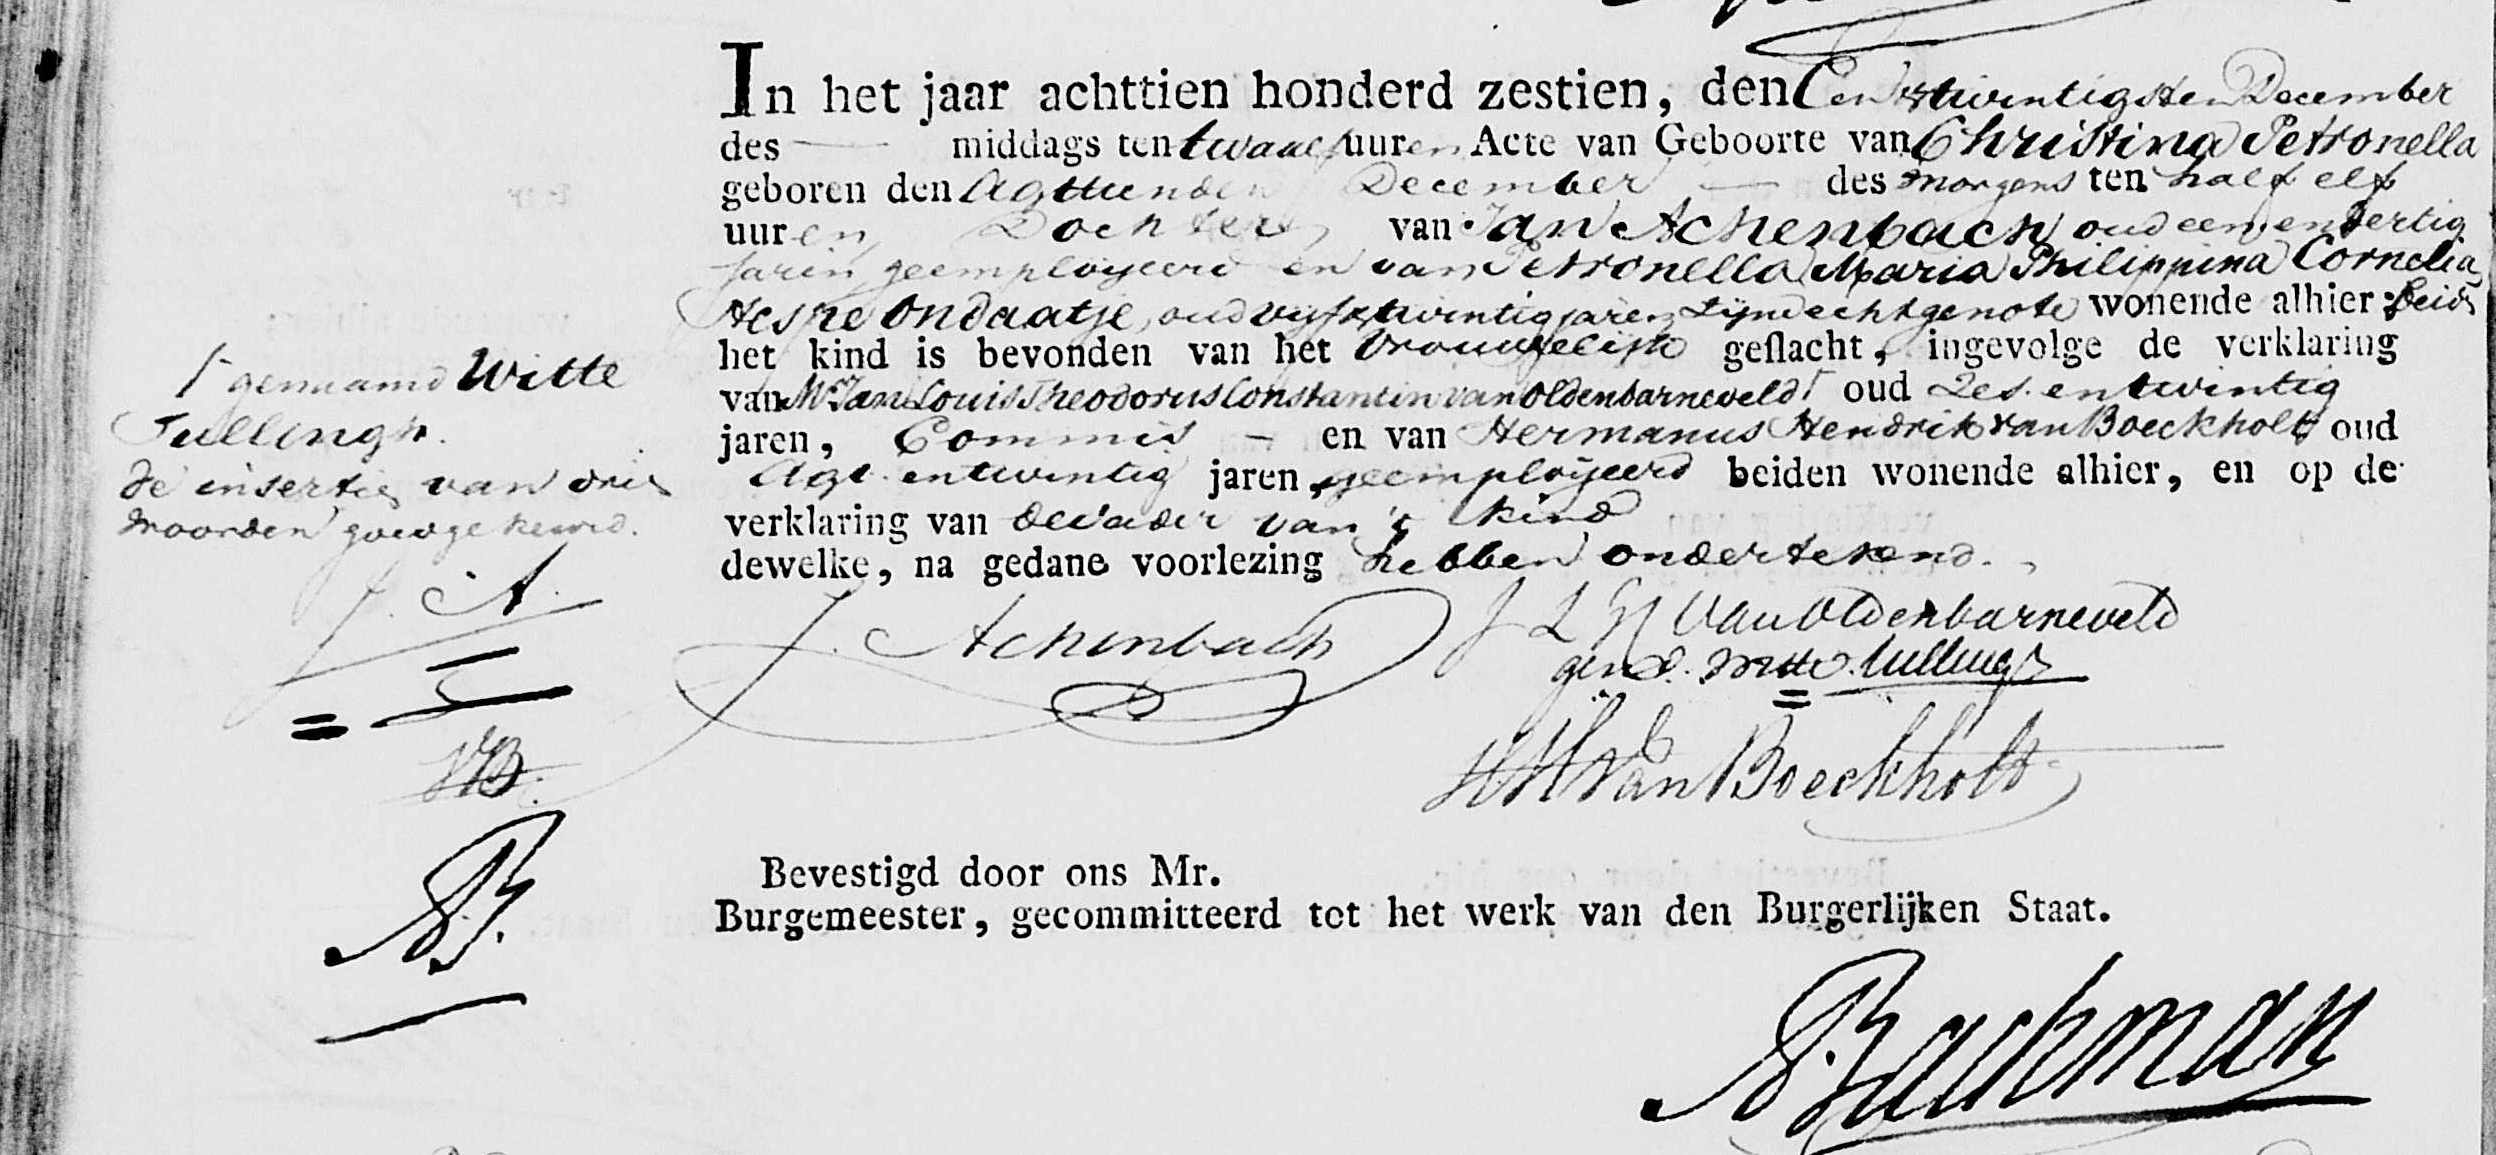 In het jaar achttien honderd zestien, den Een & twintigsten December
des — middags ten twaalf uuren Acte van Geboorte van Christina Petronella
geboren den Agttienden December — des morgens ten half elf
uuren Dochter van Jan Achenbach oud een en dertig
Jaren geemployeerd en van Petronella Maria Philippina Cornelia
Hespe Ondaatje, oud vijf & twintig jaren zijne echtgenote wonende alhier: beide
het kind is bevonden van het Vrouwelijk geslacht, ingevolge de verklaring
van Mr Jan Louis Theodorus Constantin van Oldenbarneveld ⌈ oud Zes en twintig
jaren, Commis — en van Hermanus Hendrik van Boeckholt oud
Agt en twintig jaren, geemployeerd beiden wonende alhier, en op de
verklaring van de vader van 't kind
dewelke, na gedane voorlezing hebben ondertekend.
⌈ genaamd Witte
Tullingh.
de insertie van drie
woorden goedgekeurd.
J. A.
J. Achenbach
J L T C van Oldenbarneveld
gend. Witte Tullingh
VB.
H H van Boeckholt
Bevestigd door ons Mr.
Burgemeester, gecommitteerd tot het werk van den Burgerlijken Staat.
Bachman